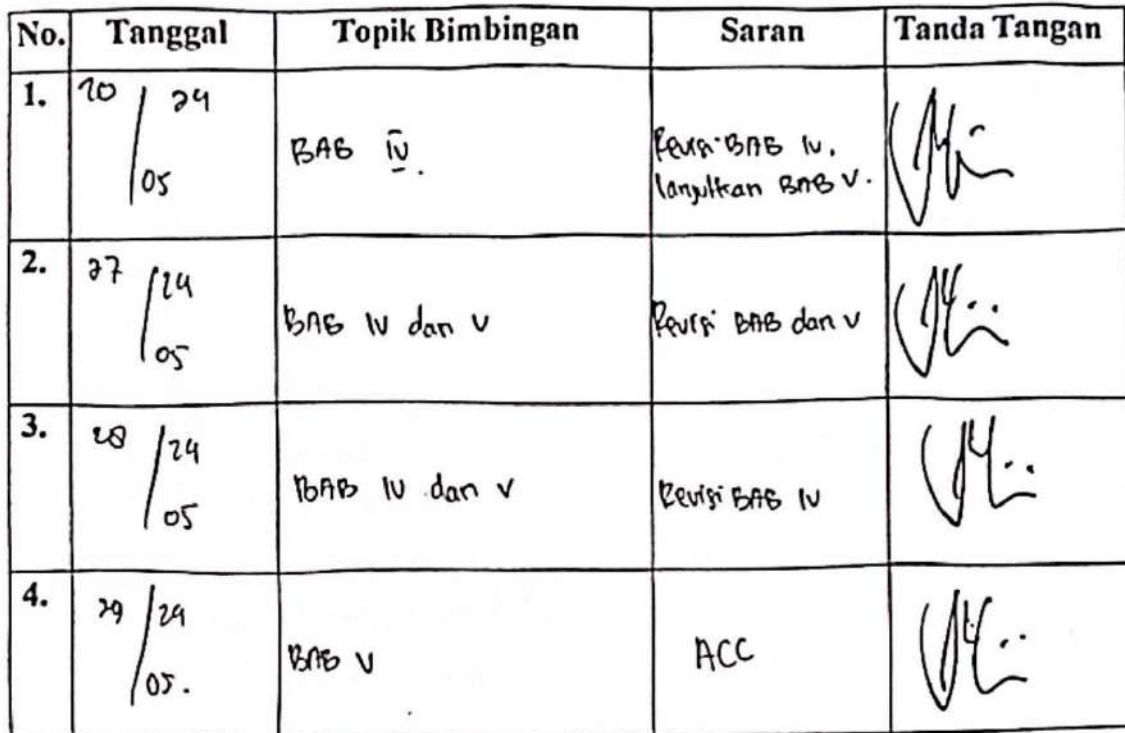 No. Tanggal Topik Bimbingan Saran Tanda Tangan
1. 20 / 24
05
BAB IV.
Revisi BAB IV.
lanjutkan BAB V.
2. 27 / 24
05
BAB IV dan V
Revisi BAB dan V
3. 28 / 24
05
BAB IV dan V
Revisi BAB IV
4. 29 / 24
05.
BAB V
ACC